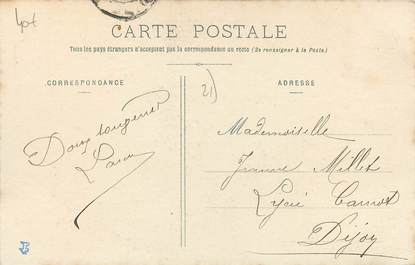 CARTE POSTALE
Tous les pays étrangers n'acceptent pas la correspondance au recto (Se renseigner à la Poste)
CORRESPONDANCE
ADRESSE
21)
Doux
Mademoiselle
Jeanne Millet
Lycée Carnot
Dijon